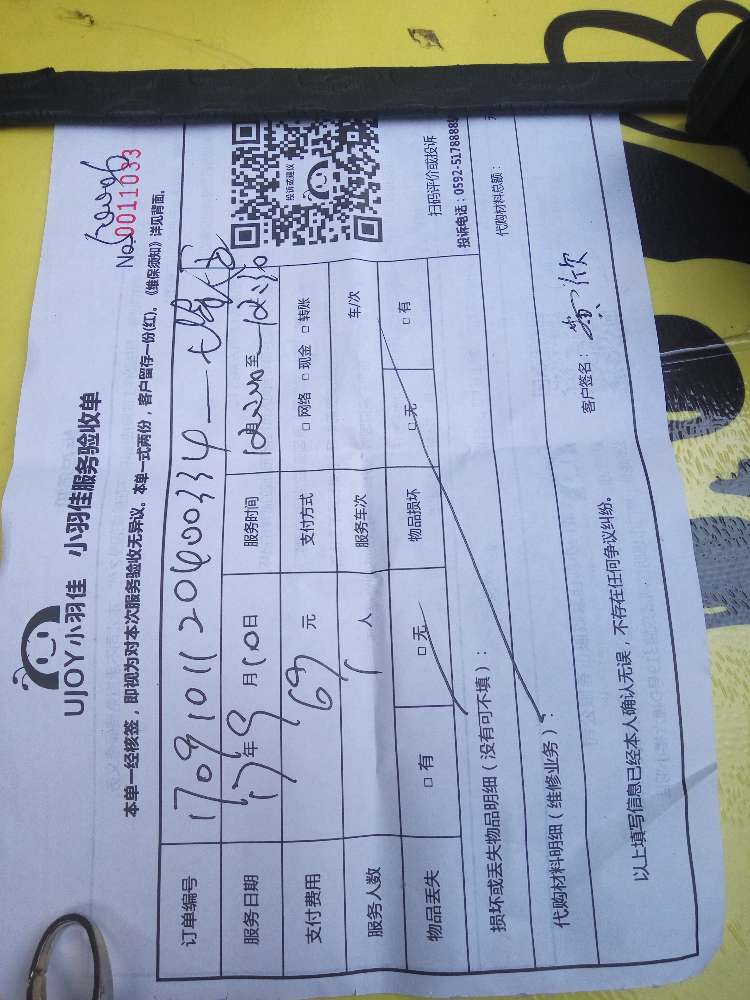 UJOY小羽佳 小羽佳服务验收单
No.0011033
本单一经核签，即视为对本次服务验收无异议。本单一式两份，客户留存一份(红)。《维保须知》详见背面。
订单编号
服务日期 17年9月10日 服务时间 至
支付费用 69元 支付方式 □ 网络 □ 现金 □ 转账
服务人数 1人 服务车次 车/次
物品丢失 □ 有 □ 无 物品损坏 □ 无 □ 有
投诉或建议
扫码评价或投诉
投诉电话：0592-5178888
损坏或丢失物品明细（没有可不填）：
代购材料明细（维修业务）： 代购材料总额：
以上填写信息已经本人确认无误，不存在任何争议纠纷。
客户签名：